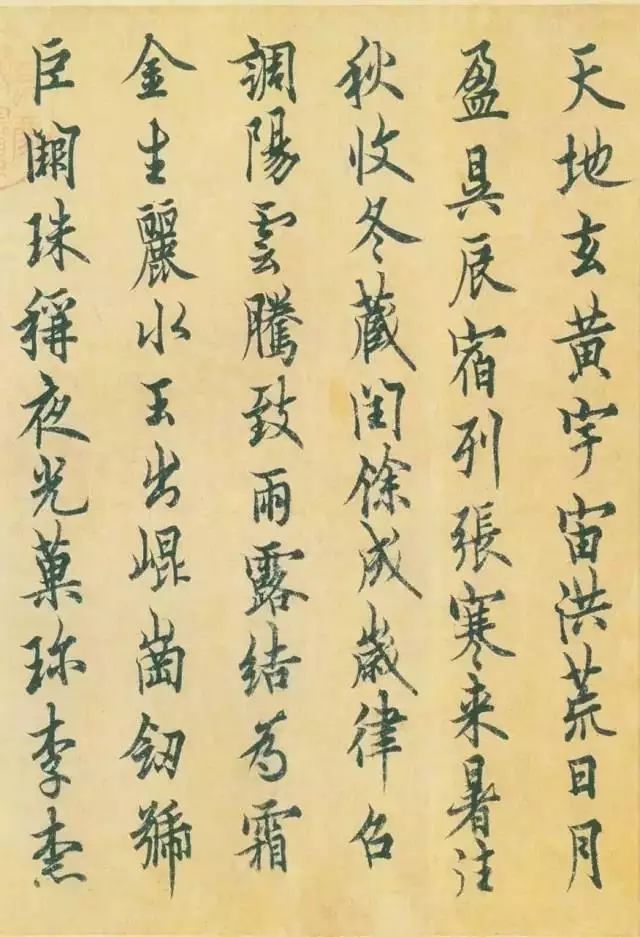 天地玄黃宇宙洪荒日月
盈昃辰宿列張寒来暑往
秋收冬藏閏餘成歲律吕
調陽雲騰致雨露結為霜
金生麗水玉出崐崗劒號
巨闕珠稱夜光菓珎李柰